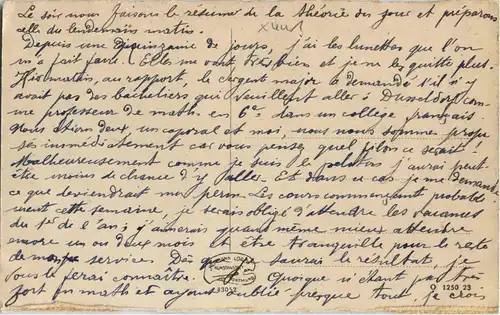 Le soir nous faisons le résumé de la théorie du jour et préparons
celle du lendemain matin.
Depuis une quinzaine de jours, j'ai les lunettes que l'on
m'a fait faire. Elles me vont très bien et je ne les quitte plus.
Hier matin, au rapport, le sergent major a demandé s'il n'y
avait pas des bacheliers qui veuillent aller à Dusseldorf com-
me professeur de math. en 6e dans un collège français
Nous étions deux, un caporal et moi, nous nous sommes propo-
sés immédiatement car vous pensez quel filon ce serait!
Malheureusement comme je suis le peloton j'aurai peut
être moins de chance d'y aller. Et dans ce cas je me demande
ce que deviendrait ma perm. Les cours commençant probable
ment cette semaine, je serais obligé d'attendre les vacances
du 1er de l'an; j'aimerais quand même mieux attendre
encore un ou deux mois et être tranquille pour le reste
de mon service. Dès que je saurai le résultat, je
vous le ferai connaître. Quoique n'étant pas très
fort en math et ayant oublié presque tout, je crois
13052
O 1250 23